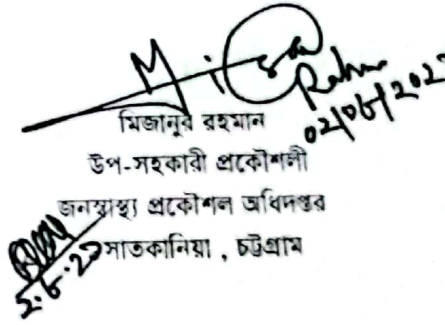 Rahman
02/06/202
মিজানুর রহমান
উপ-সহকারী প্রকৌশলী
জনস্বাস্থ্য প্রকৌশল অধিদপ্তর
সাতকানিয়া , চট্টগ্রাম